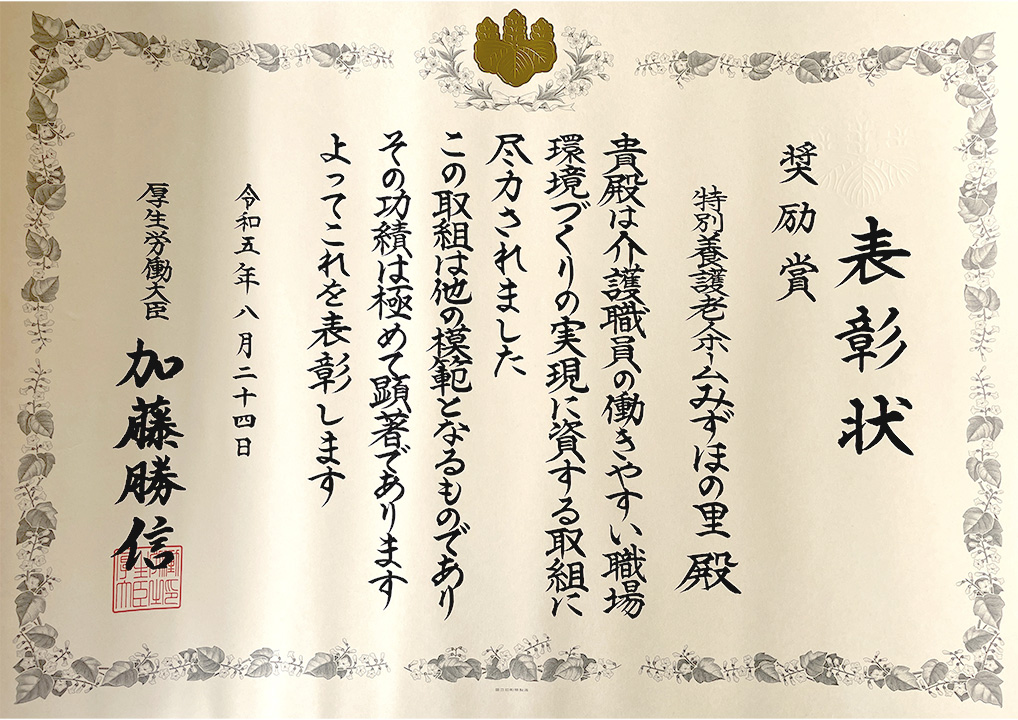 表彰状
奨励賞
特別養護老人ホームみずほの里 殿
貴殿は介護職員の働きやすい職場
環境づくりの実現に資する取組に
尽力されました
この取組は他の模範となるものであり
その功績は極めて顕著であります
よってこれを表彰します
令和五年八月二十四日
厚生労働大臣 加藤勝信